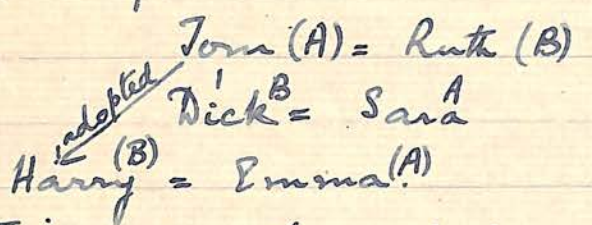 Tom (A) = Ruth (B)
adopted
Dick B = Sara A
Harry (B) = Emma (A).